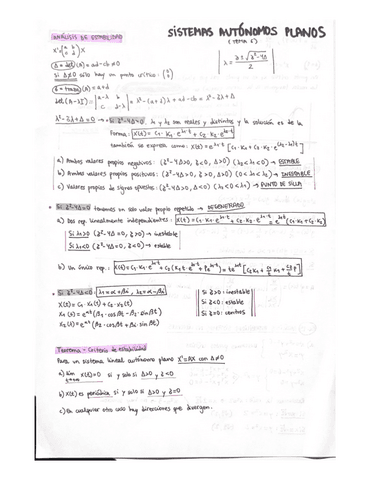 SISTEMAS AUTÓNOMOS PLANOS
(TEMA 6)
ANÁLISIS DE ESTABILIDAD
X' = (a b / c d) X
Δ = det(A) = ad - cb ≠ 0
Si Δ≠0 sólo hay un punto crítico: (0 / 0)
λ = (z ± √(z²-4Δ)) / 2
z = traza(A) = a+d
det(A-λI) = |a-λ b / c d-λ| = λ² - (a+d)λ + ad - cb = λ² - zλ + Δ
λ² - zλ + Δ = 0 → Si z²-4Δ>0, λ₁ y λ₂ son reales y distintos y la solución es de la
forma: X(t) = C₁·K₁·e^λ₁t + C₂·K₂·e^λ₂t
también se expresa como: X(t) = e^λ₁t [C₁·K₁ + C₂·K₂·e^(λ₂-λ₁)t]
a) Ambos valores propios negativos: (z²-4Δ>0, z<0, Δ>0) (λ₂<λ₁<0) → ESTABLE
b) Ambos valores propios positivos: (z²-4Δ>0, z>0, Δ>0) (0<λ₂<λ₁) → INESTABLE
c) Valores propios de signos opuestos: (z²-4Δ>0, Δ<0) (λ₂<0<λ₁) → PUNTO DE SILLA
Si z²-4Δ=0 tenemos un solo valor propio repetido → DEGENERADO
a) Dos vep linealmente independientes: X(t) = C₁·K₁·e^λ₁t + C₂·K₂·e^λ₁t = e^λ₁t (C₁·K₁+C₂·K₂)
Si λ₁>0 (z²-4Δ=0, z>0) → inestable
Si λ₁<0 (z²-4Δ=0, z<0) → estable
b) Un único vep:
Si z²-4Δ<0: λ₁ = α+βi, λ₂ = α-βi
X(t) = C₁·X₁(t) + C₂·X₂(t)
X₁(t) = e^αt (B₁·cosβt - B₂·sinβt)
X₂(t) = e^αt (B₂·cosβt + B₁·sinβt)
Si z>0: inestable
Si z<0: estable
Si z=0: centros
Teorema - Criterio de estabilidad
Para un sistema lineal autónomo plano X'=AX con Δ≠0
a) lim X(t)=0 si y solo si Δ>0 y z<0
b) X(t) es periódica si y solo si Δ>0 y z=0
c) En cualquier otro caso hay direcciones que divergen.